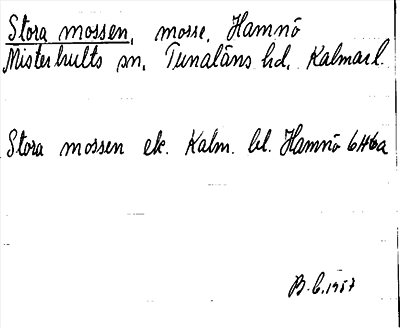 Stora mossen, mosse, Hamnö
Misterhults sn, Tunaläns hd, Kalmar l.
Stora mossen ek. Kalm. bl. Hamnö 6H6a
B.C. 1957